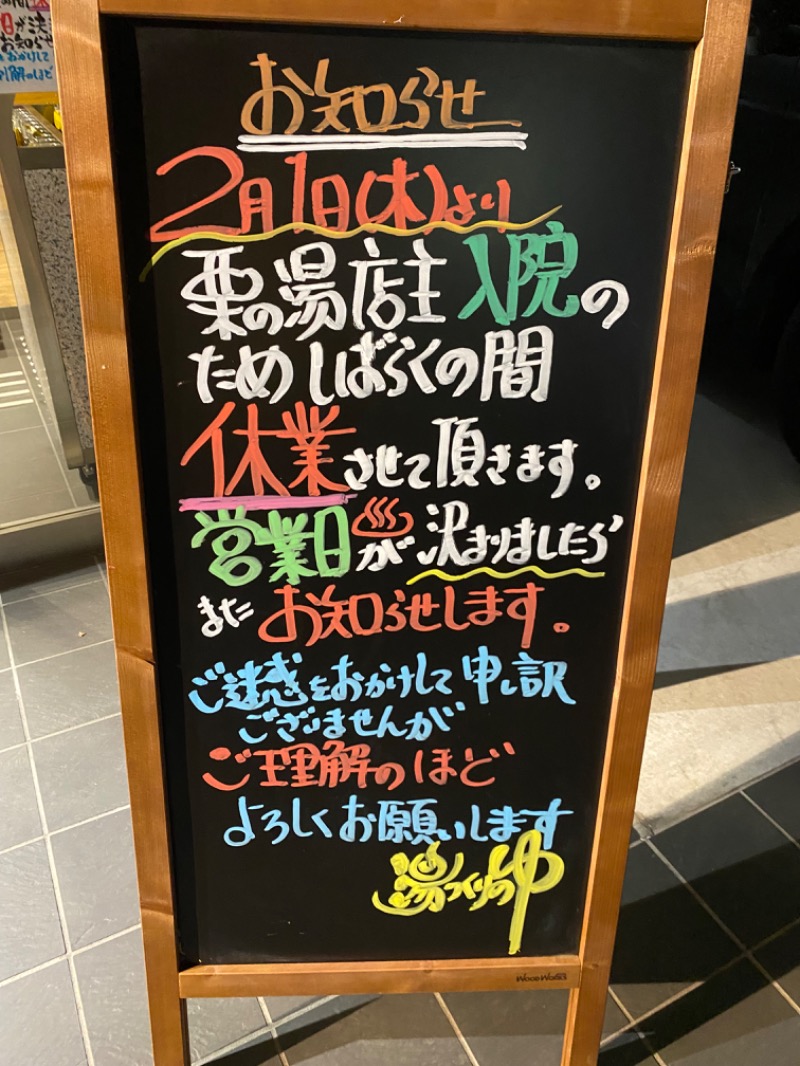 お知らせ
2月1日(木)より
栗の湯店主入院の
ためしばらくの間
休業させて頂きます。
営業日♨が決まりましたら
またお知らせします。
ご迷惑をおかけして申し訳
ございませんが
ご理解のほど
よろしくお願いします
湯つくりのゆ